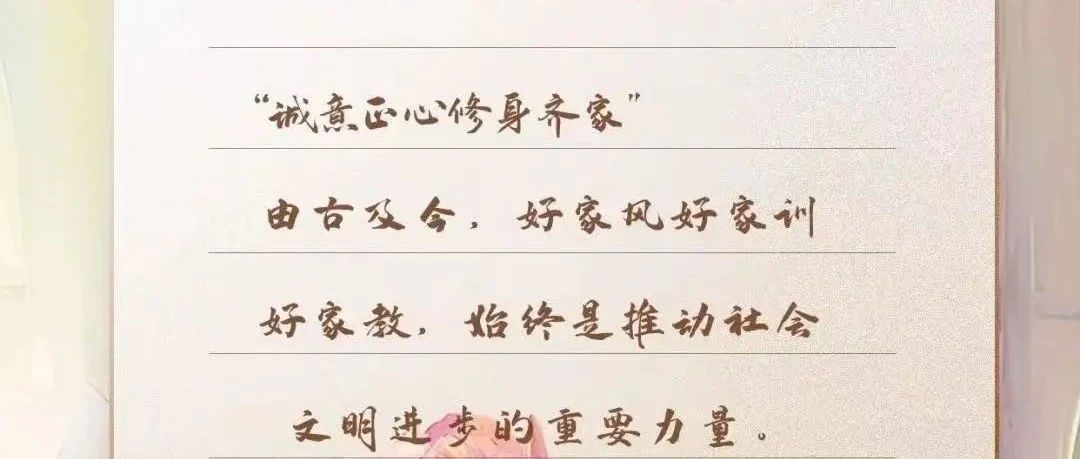 “诚意正心修身齐家”
由古及今，好家风好家训
好家教，始终是推动社会
文明进步的重要力量。